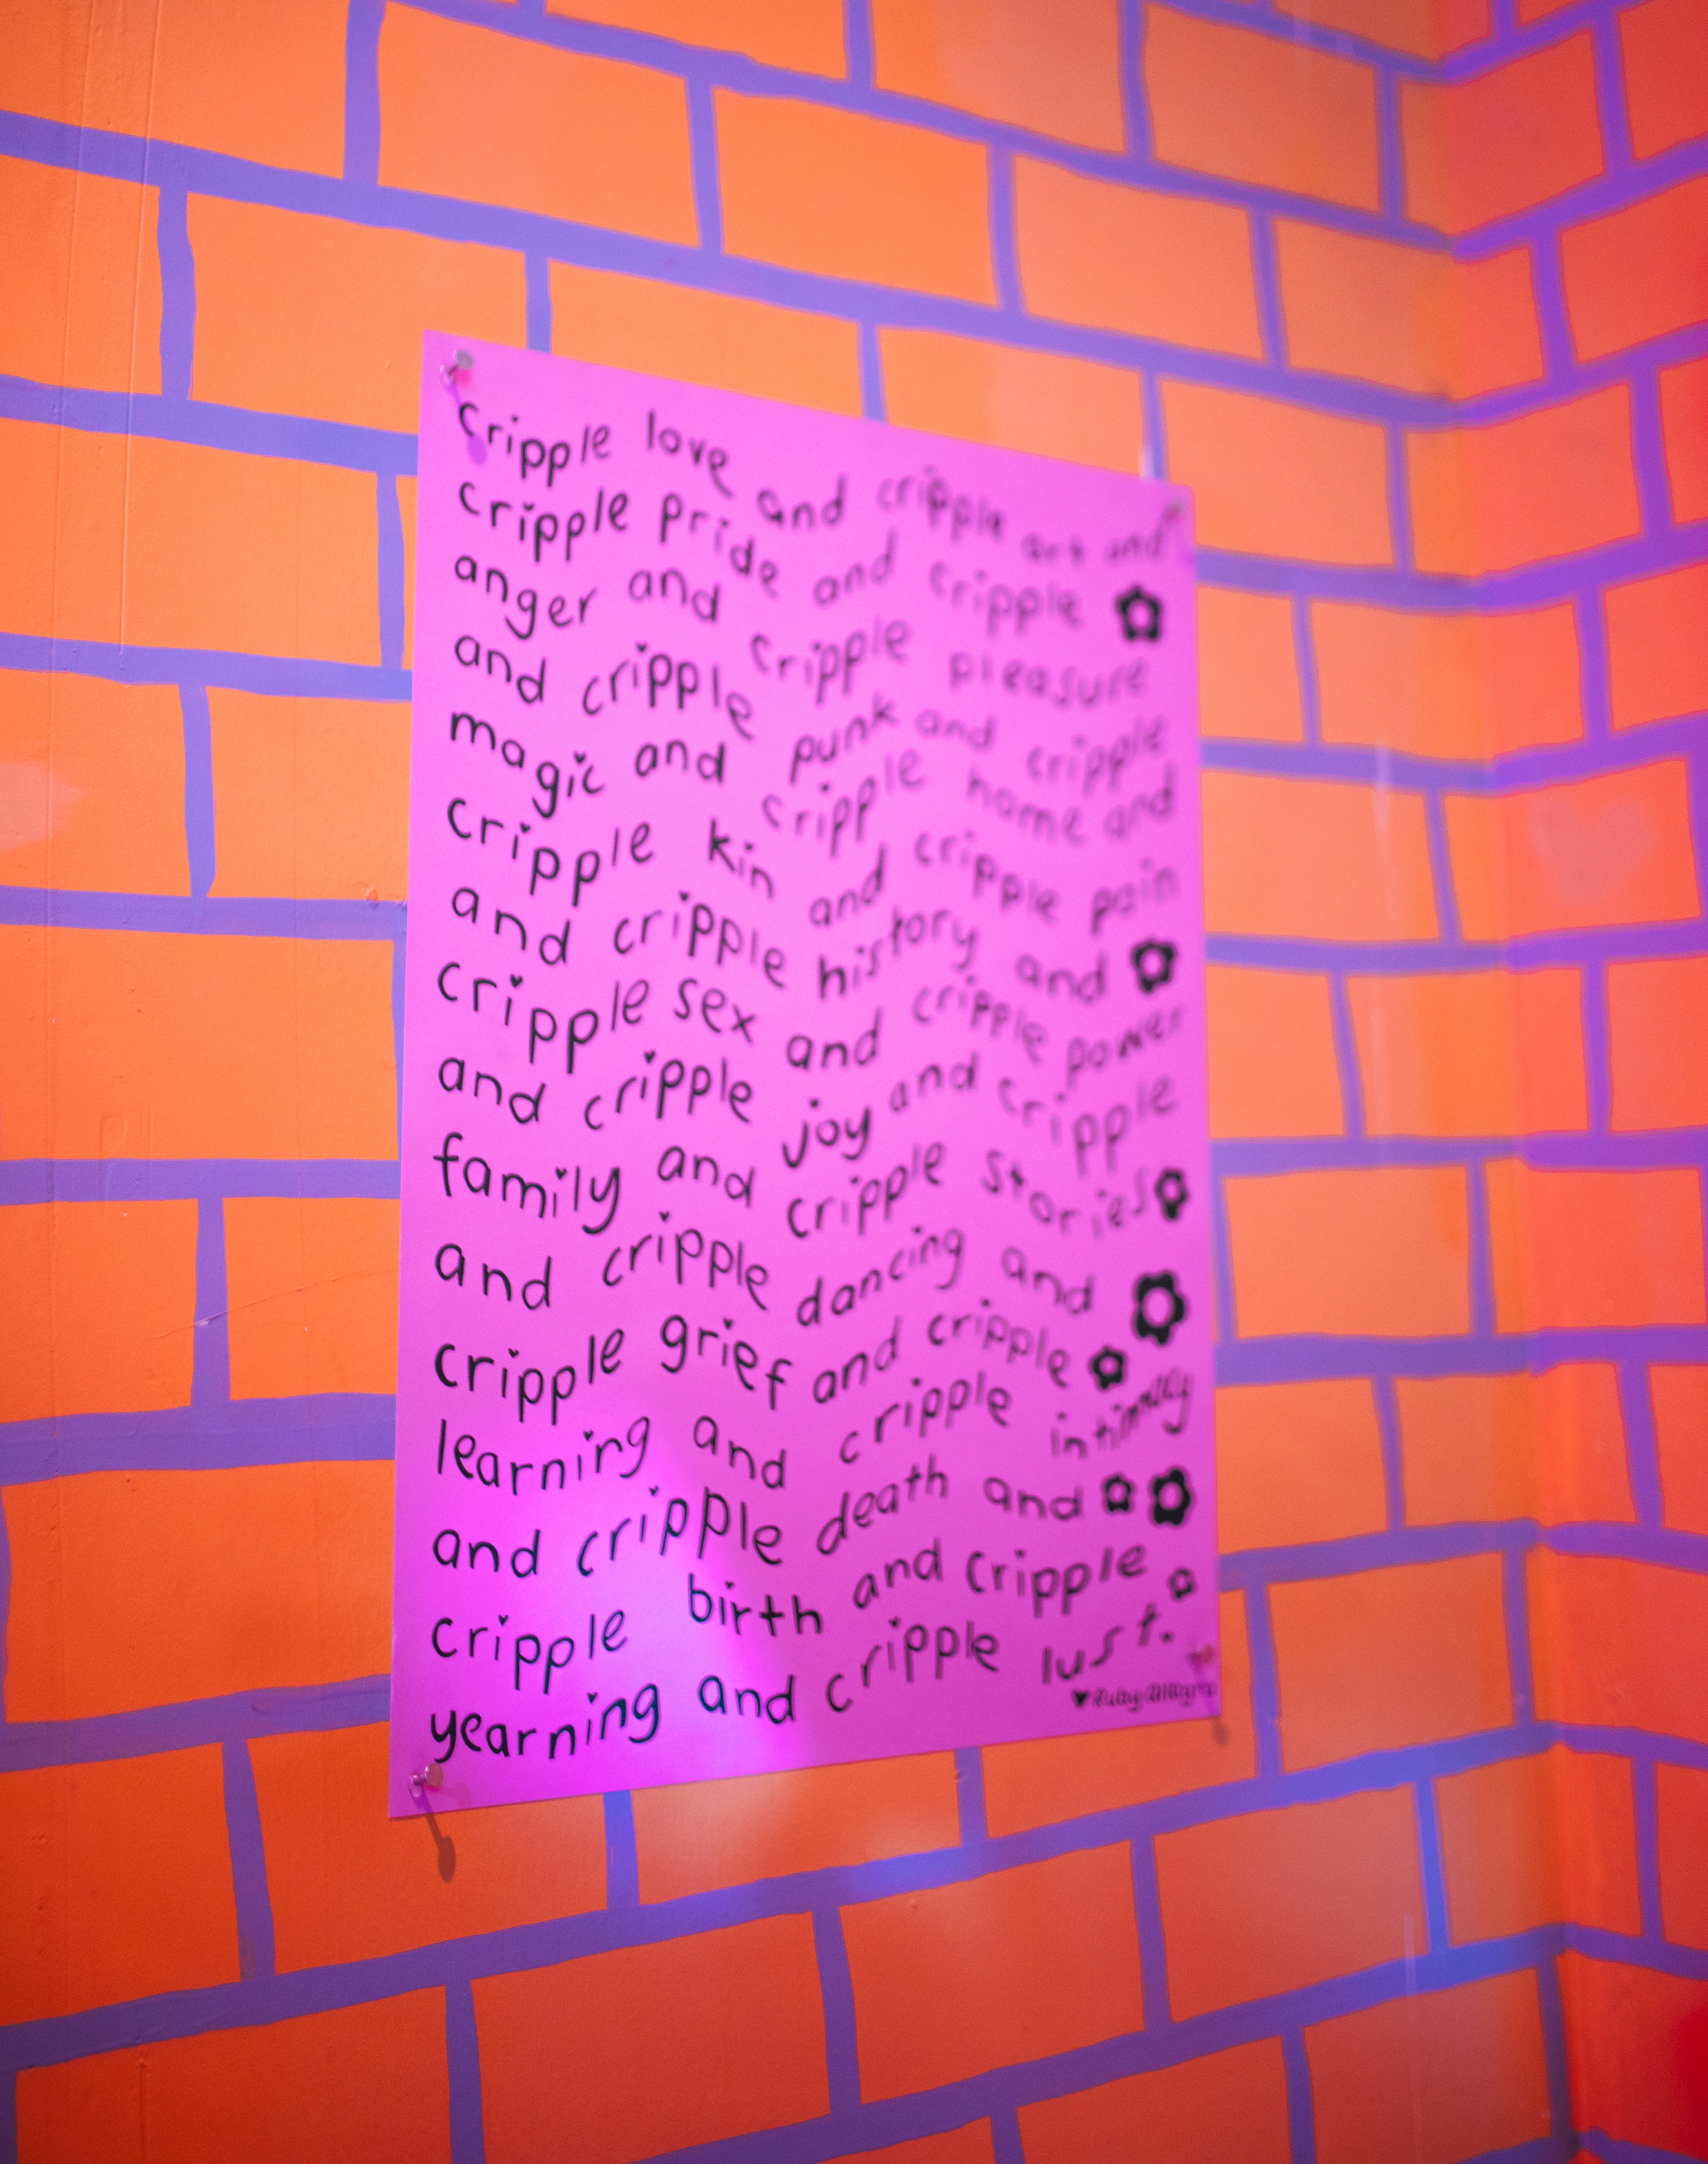 cripple love and cripple art and
cripple pride and cripple
anger and cripple pleasure
and cripple punk and cripple
magic and cripple home and
cripple kin and cripple pain
and cripple history and
cripple sex and cripple power
and cripple joy and cripple
family and cripple stories
and cripple dancing and
cripple grief and cripple
learning and cripple intimacy
and cripple death and
cripple birth and cripple
yearning and cripple lust.
Ruby